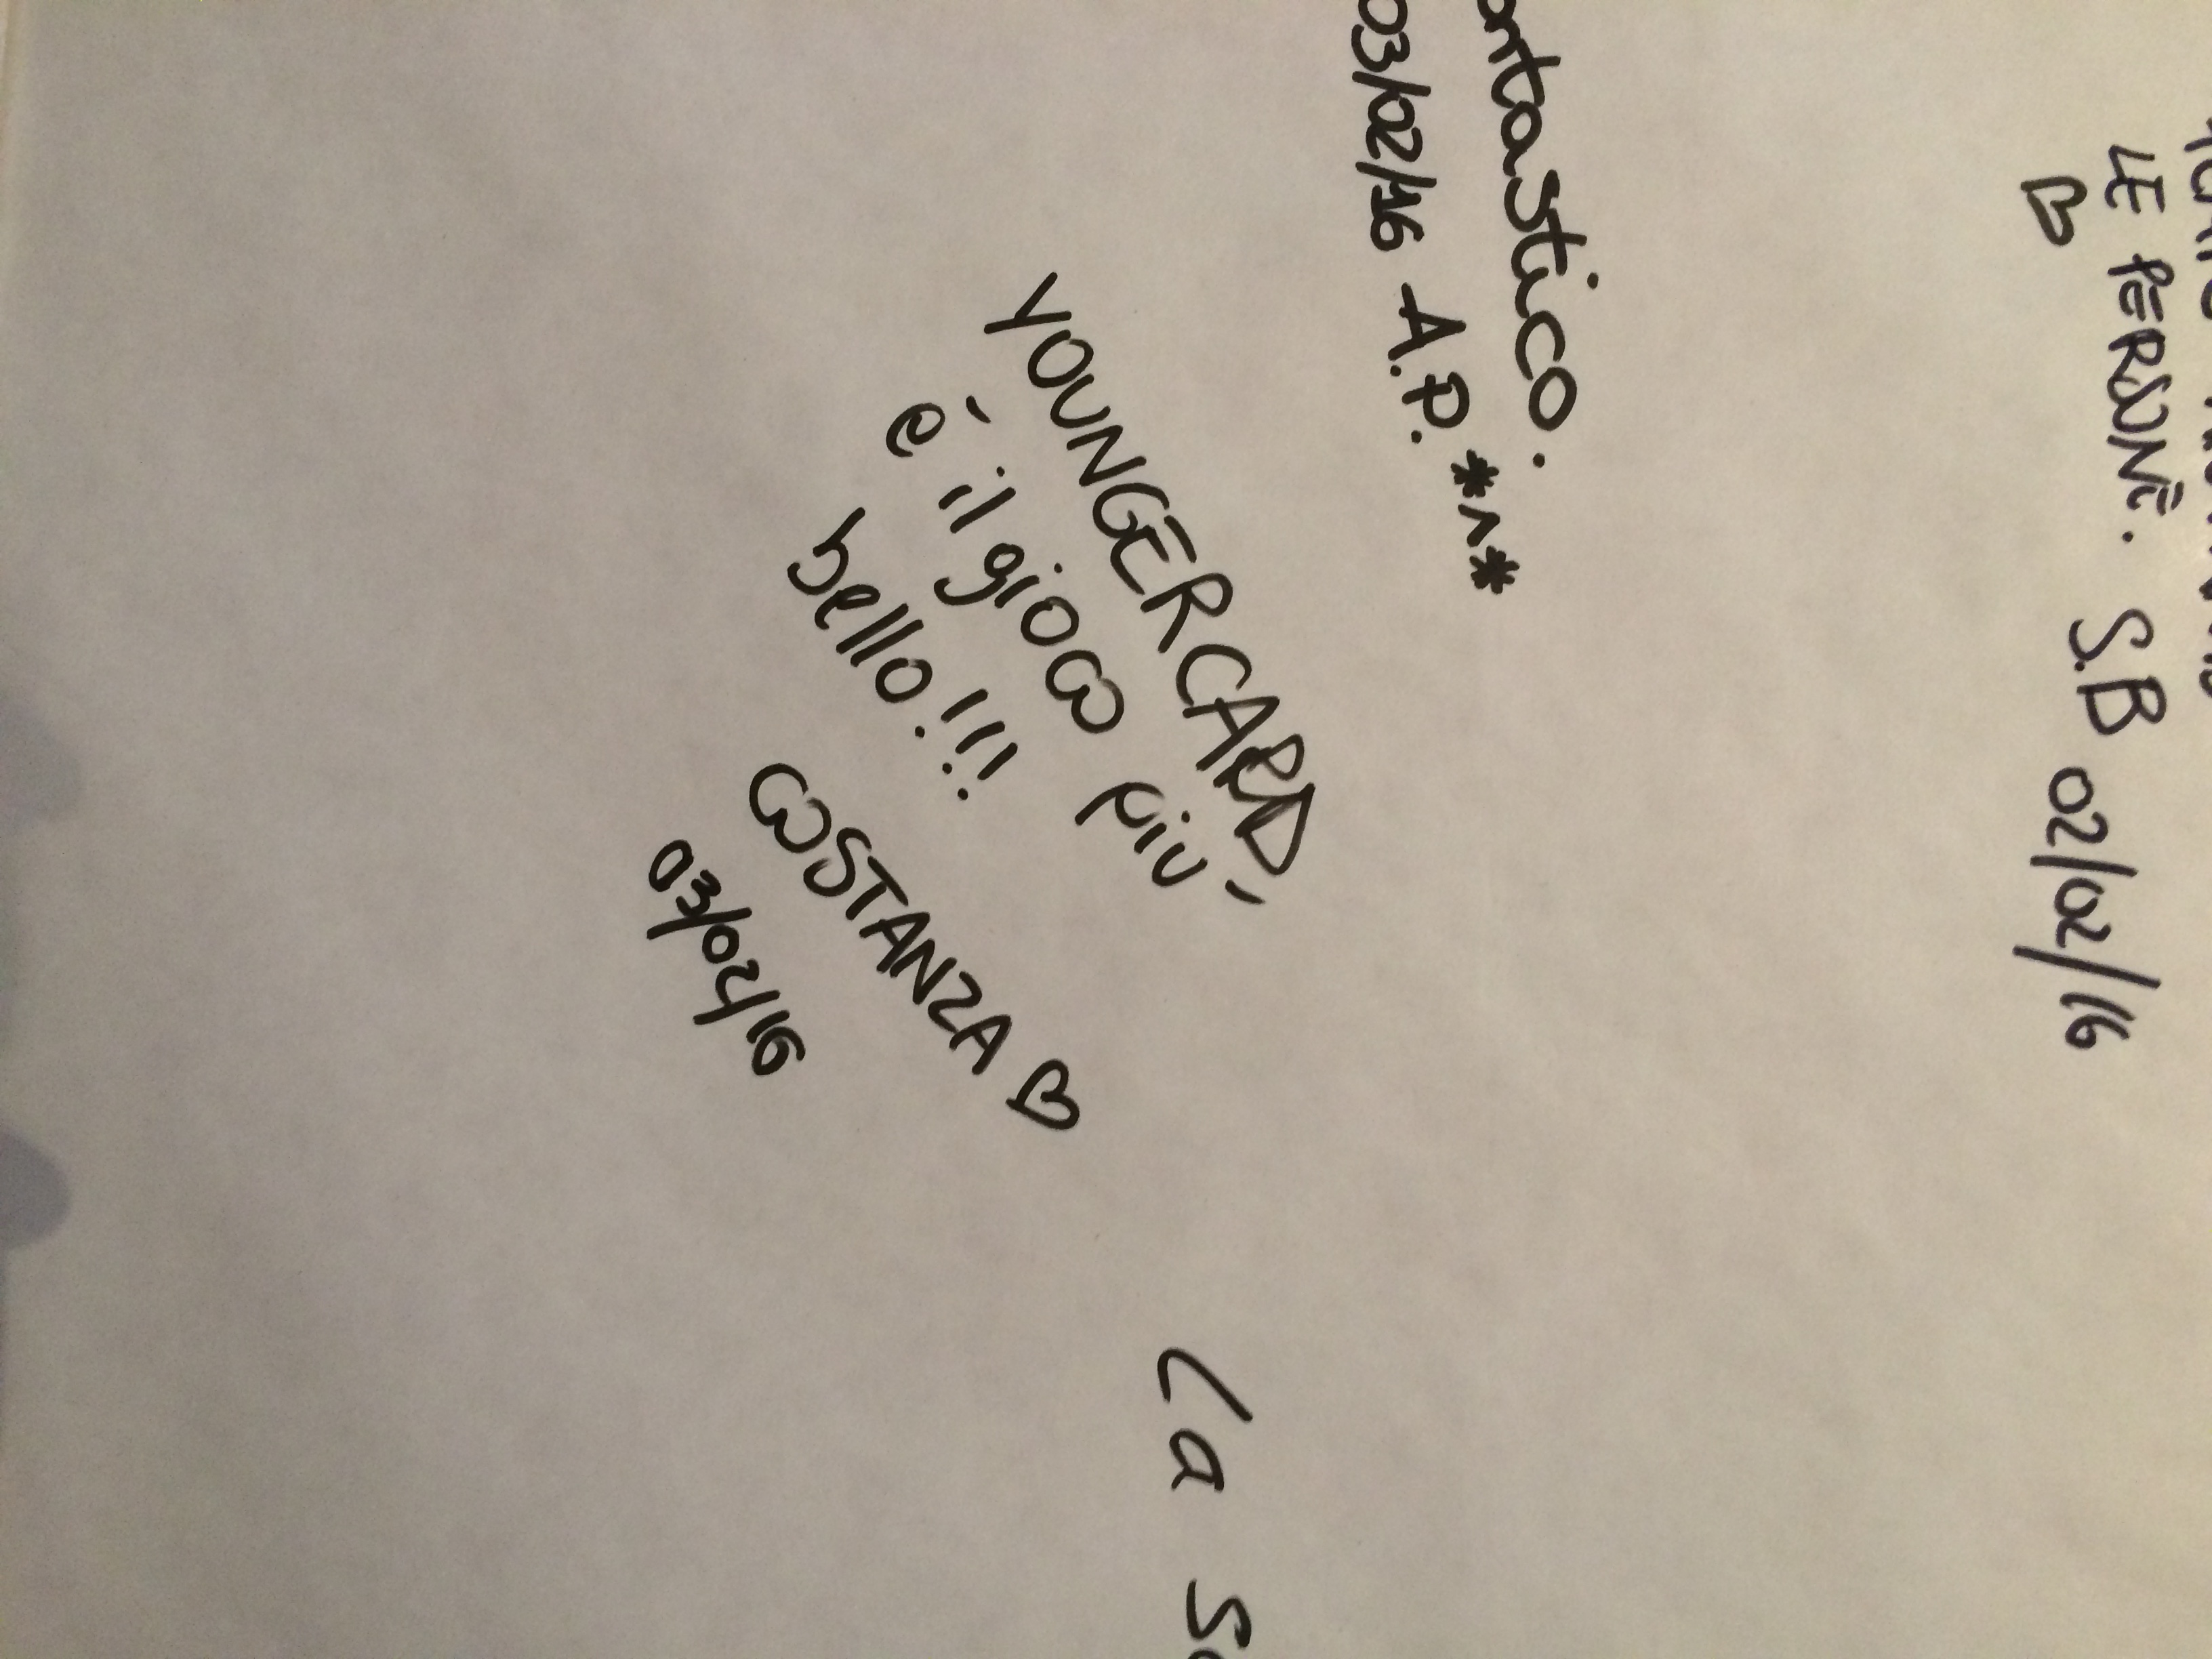 LE PERSONE. S.B 02/02/16
♡
ntastico.
03/02/16 A.P. *^*
YOUNGERCARD
è il gioco più
bello!!!
COSTANZA ♡
03/02/16
La